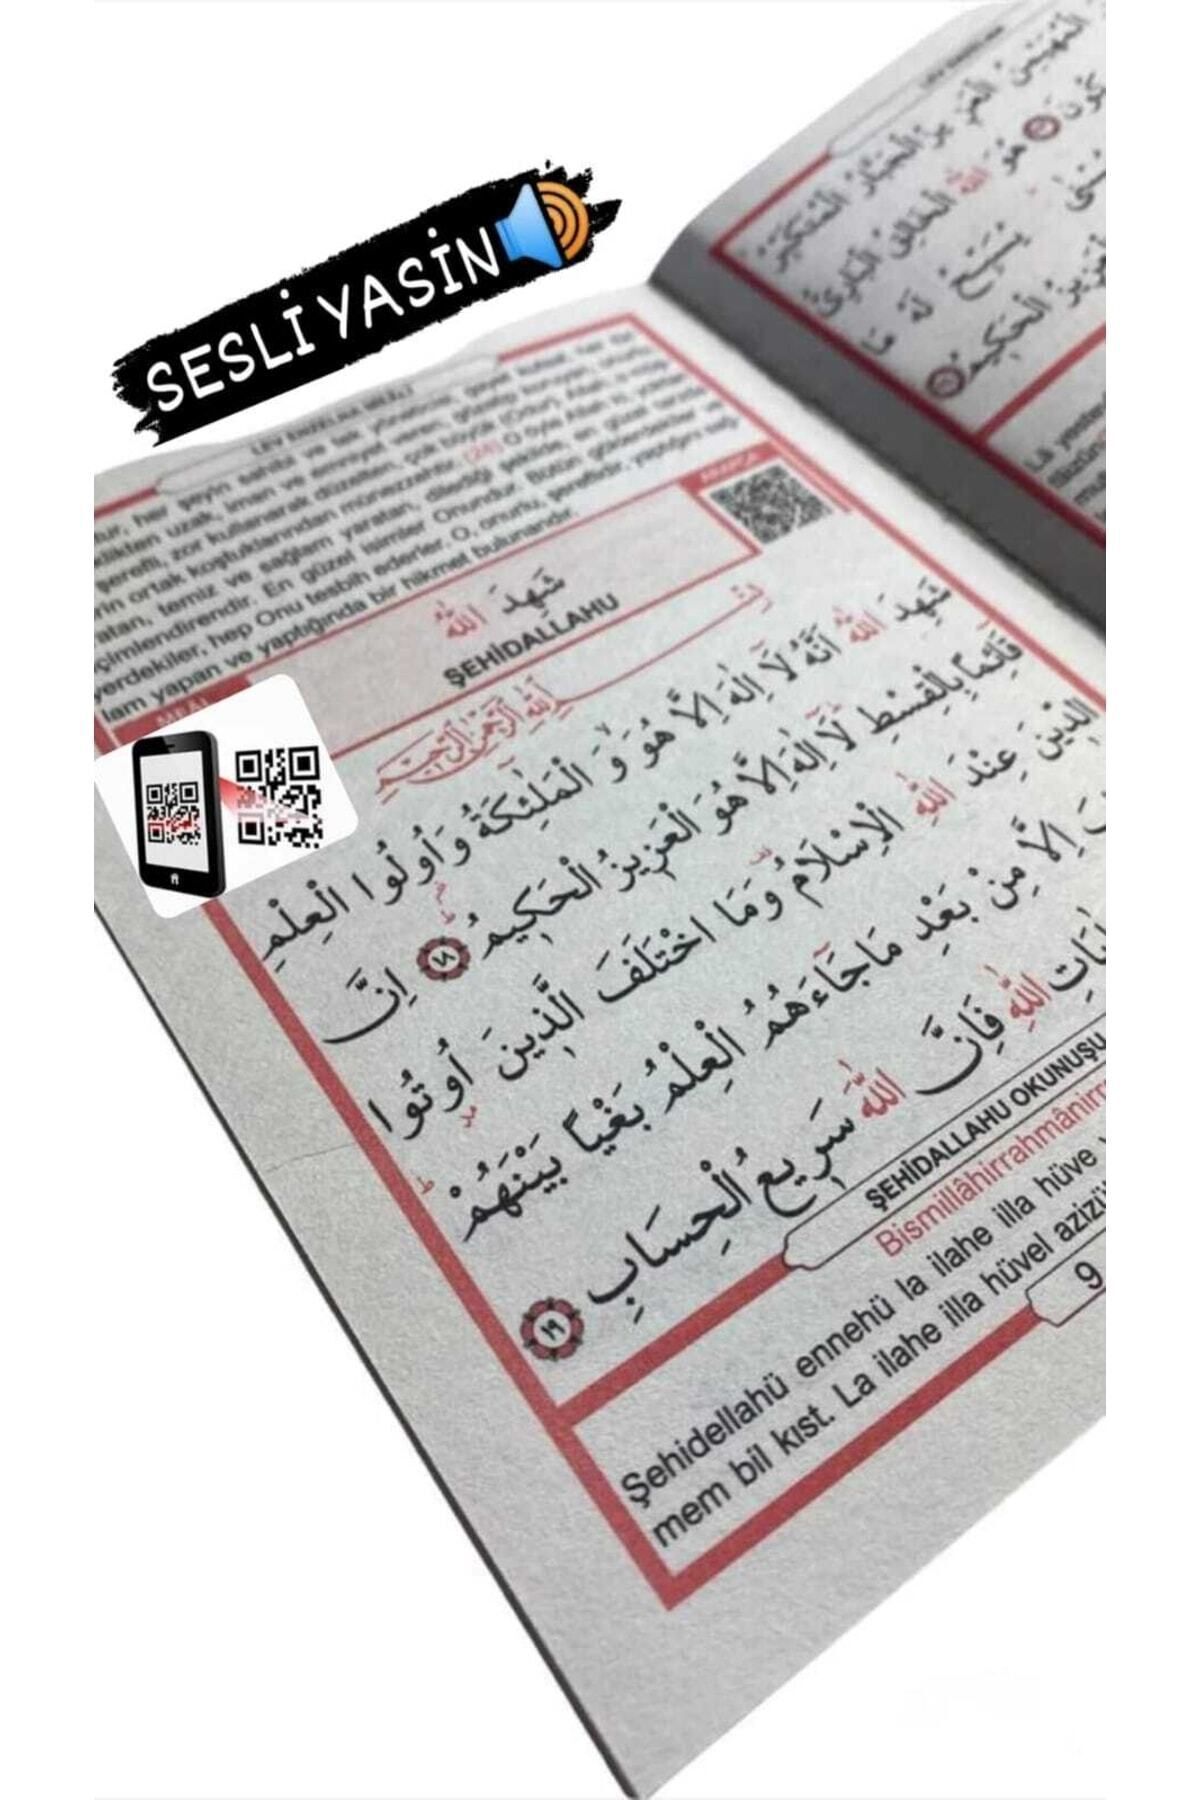 SESLİ YASİN
LEV ENZELNA MEÂLİ
tur, her şeyin sahibi ve tek yöneticisi,
sliklikten uzak, iman ve emniyet veren, gözetip koruyan,
şerefli, zor kullanarak düzelten, çok büyük (Odur). Allah,
rin ortak koştuklarından münezzehtir. (24) O öyle Allah ki, yoktan
atan, temiz ve sağlam yaratan, dilediği şekilde, en güzel tarzda
çimlendirendir. En güzel isimler Onundur. Bütün göktekiler ve
yerdekiler, hep Onu tesbih ederler. O, onurlu, şereflidir, yaptığını sağ-
lam yapan ve yaptığında bir hikmet bulunandır.
MEAL
ARAPÇA
شَهِدَ اللّٰهُ
ŞEHİDALLAHU
بِسْـــمِ اللّٰهِ الرَّحْمٰنِ الرَّحِيمِ
شَهِدَ اللّٰهُ اَنَّهُ لَآ اِلٰهَ اِلَّا هُوَۙ وَ الْمَلٰٓئِكَةُ وَ اُولُوا الْعِلْمِ
قَآئِماً بِالْقِسْطِۜ لَآ اِلٰهَ اِلَّا هُوَ الْعَزِيزُ الْحَكِيمُ ﴿١٨﴾ اِنَّ
الدِّينَ عِنْدَ اللّٰهِ الْاِسْلَامُ وَمَا اخْتَلَفَ الَّذِينَ اُوتُوا
اِلَّا مِنْ بَعْدِ مَا جَآءَهُمُ الْعِلْمُ بَغْياً بَيْنَهُمْ
بِاٰيَاتِ اللّٰهِ فَاِنَّ اللّٰهَ سَرِيعُ الْحِسَابِ ﴿١٩﴾
ŞEHİDALLAHU OKUNUŞU
Bismillâhirrahmânirr
Şehidellahü ennehü la ilahe illa hüve v
mem bil kıst. La ilahe illa hüvel azizü
9
الْمُهَيْمِنُ الْعَزِيزُ الْجَبَّارُ الْمُتَكَبِّرُ
هُوَ اللّٰهُ الْخَالِقُ الْبَارِئُ
لَهُ
الْعَزِيزُ الْحَكِيمُ
Lâ yestev